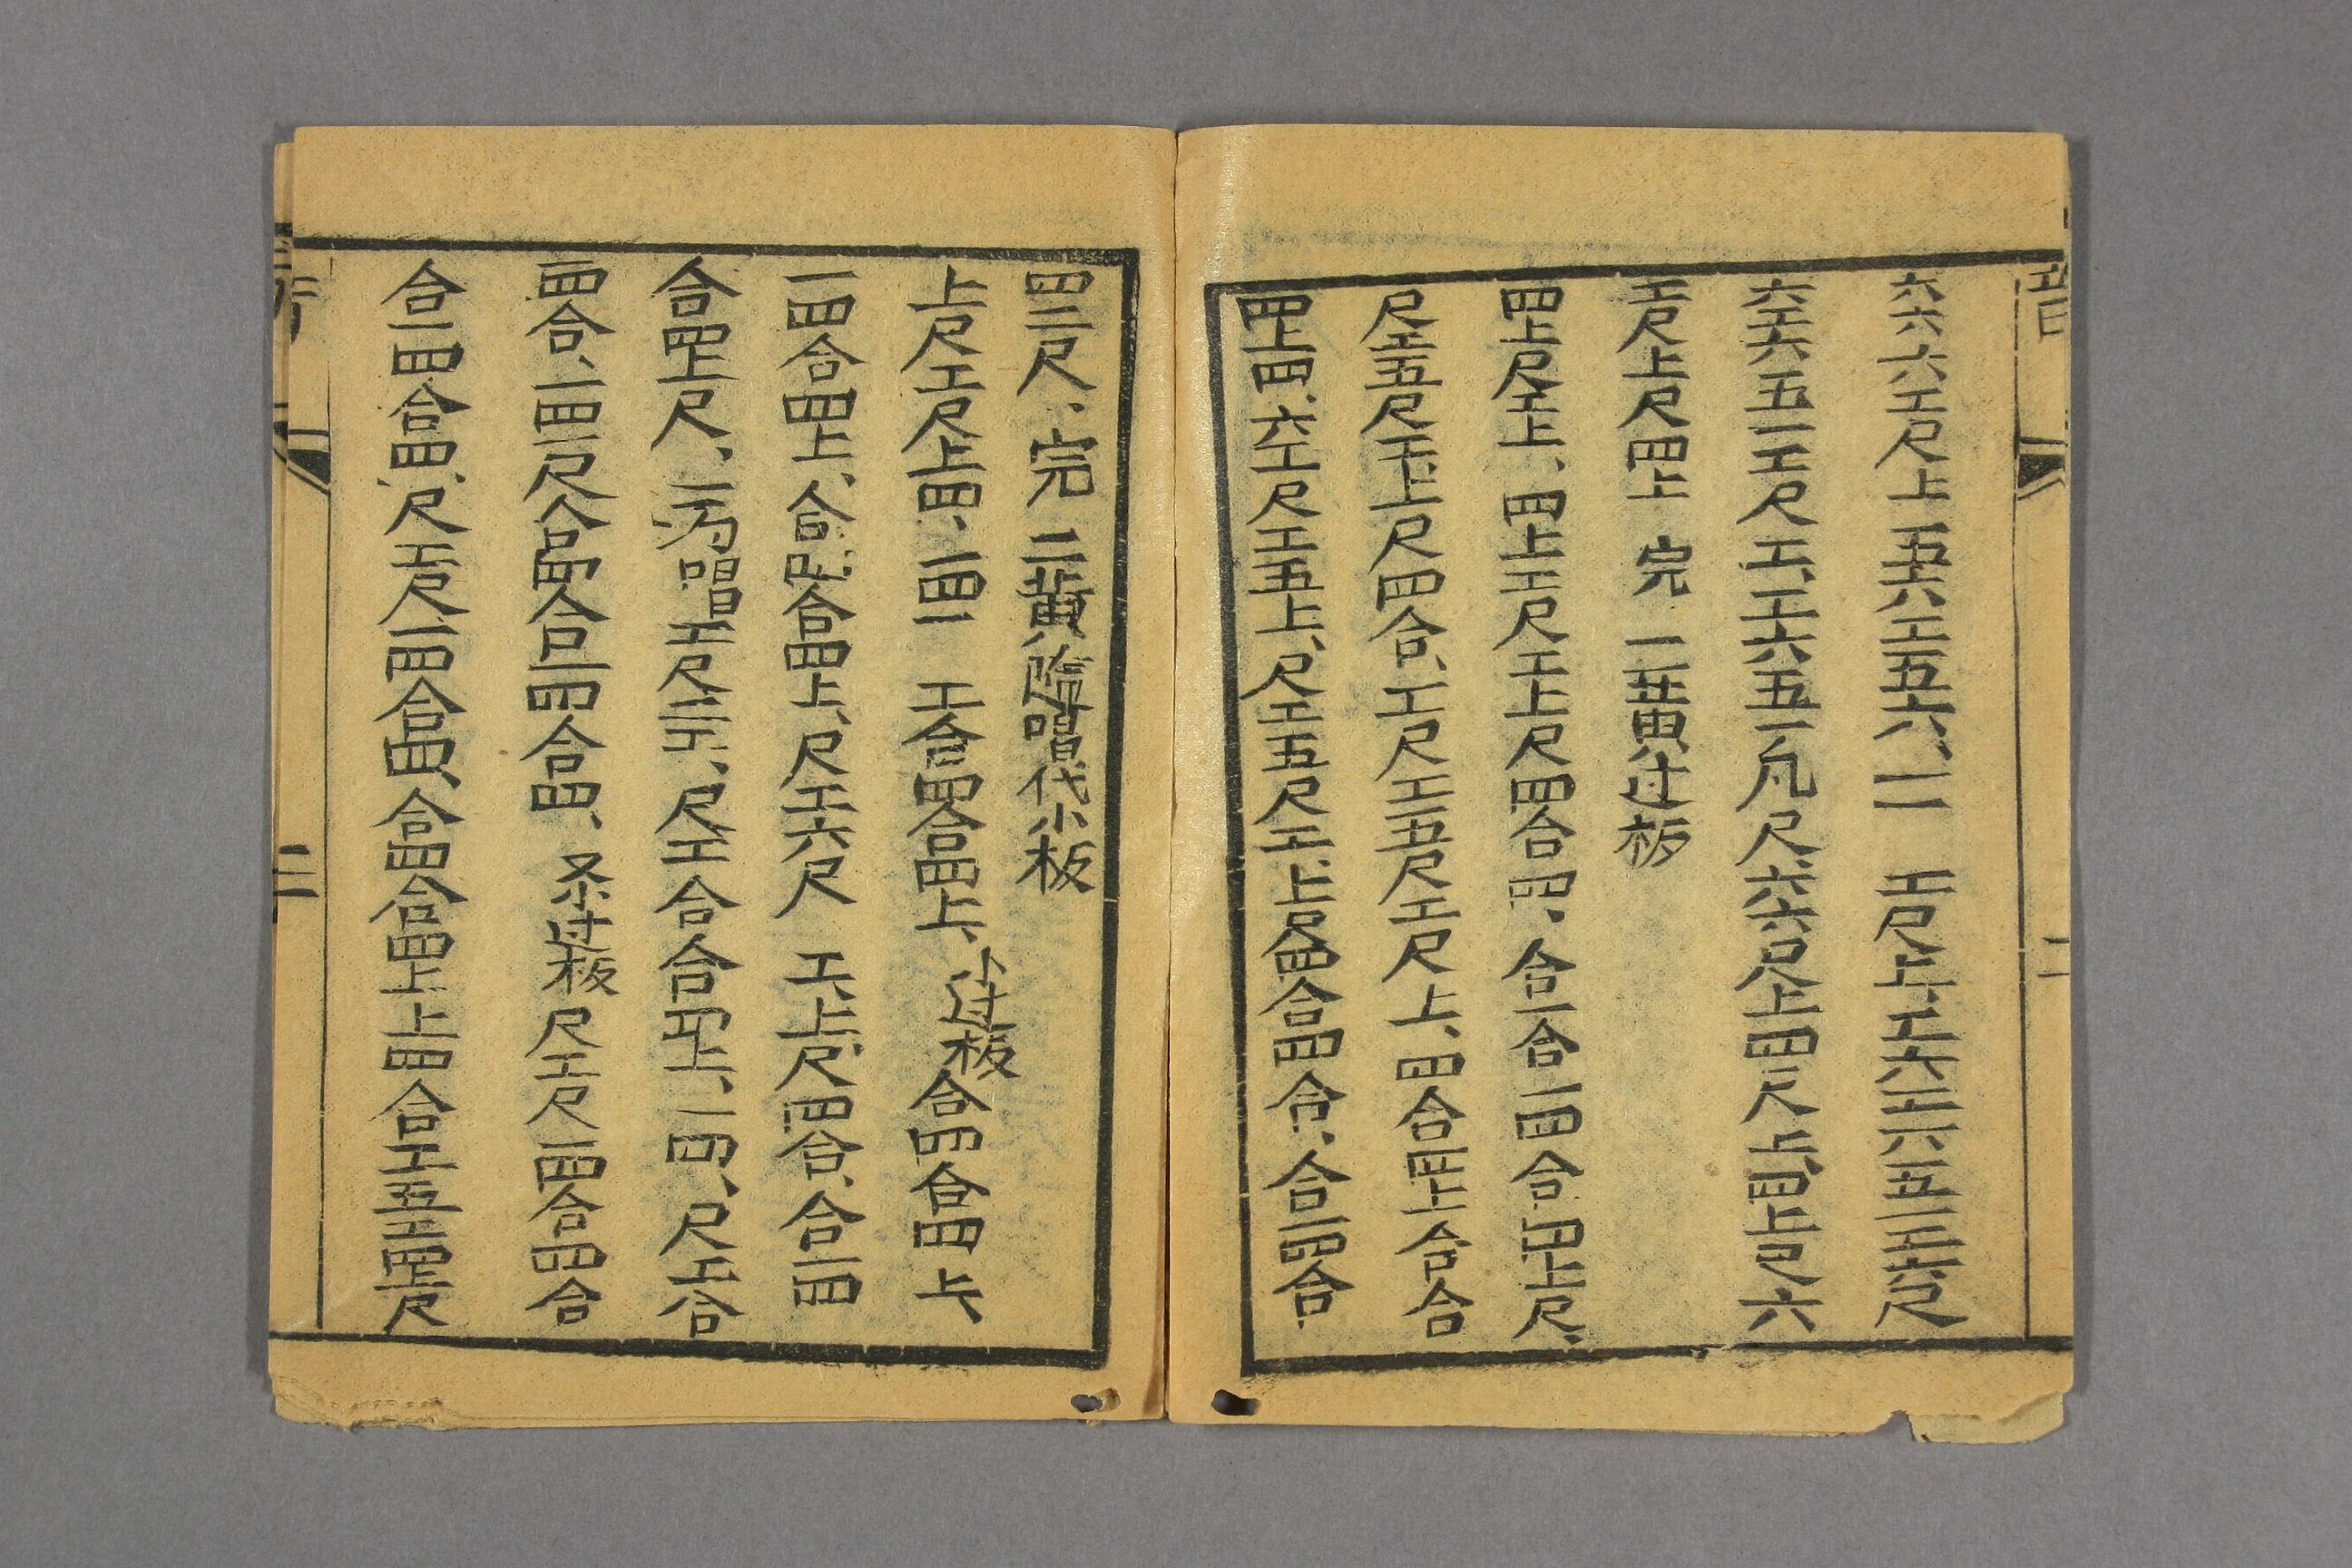 六六六工尺上五六工五六、一一 工尺上、工六工六五一工工尺
六工六五一工尺工、工六五一凡尺六六尺上四尺上四上尺六
工尺上尺四上 完 二黄过板
四上尺工上、四上工尺工上尺四合四、合一合一四合四上尺、
尺工五尺工上尺四合、工尺工五尺工尺上、四合四上合合
四上四、六工尺工五上、尺工五尺工、上尺四合四合、合一四合
二
四工尺、完 二黄隂唱代小板
上尺工尺上四、一四一 工合四合四上、小过板 合四合四上
一四合四上、合四合四上、尺工六尺 工上尺四合、合一四
合四上尺、唱工尺、尺工合合四上、一四、尺工合
一四合、一四一尺合四合一四合四、又小过板 尺工尺一四合四合
合一四合四、尺工尺一四合四、合四合四上上四合工五工四上尺
三